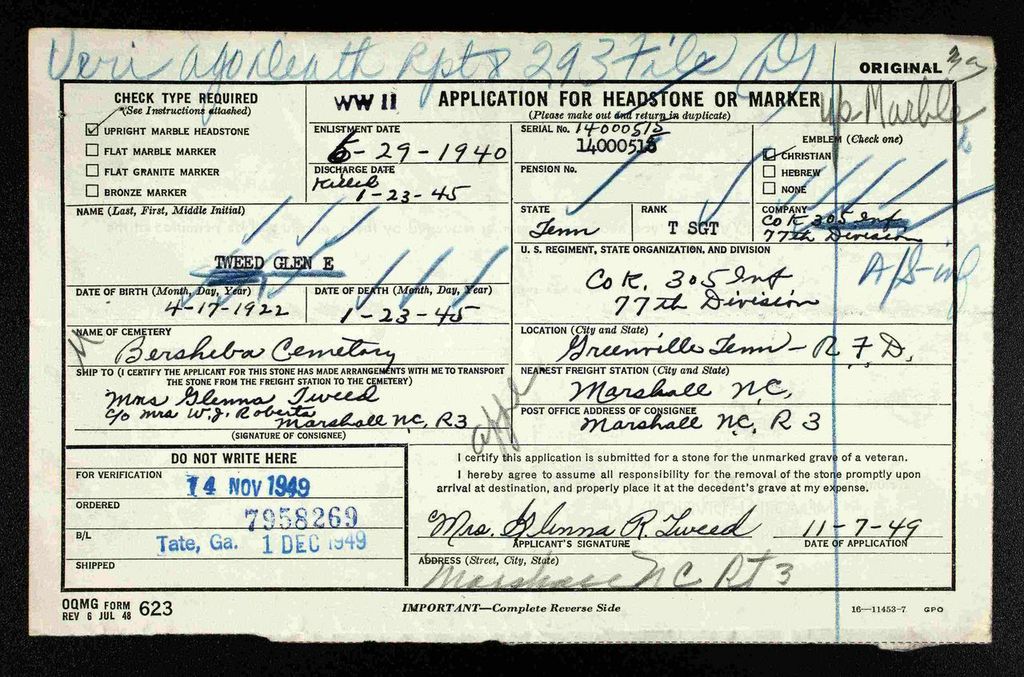 Veri ago death Rpts 293 File
ORIGINAL
Up Marble
CHECK TYPE REQUIRED
(See Instructions attached)
UPRIGHT MARBLE HEADSTONE
FLAT MARBLE MARKER
FLAT GRANITE MARKER
BRONZE MARKER
WW II
APPLICATION FOR HEADSTONE OR MARKER
(Please make out and return in duplicate)
ENLISTMENT DATE
6-29-1940
DISCHARGE DATE
Killed
1-23-45
SERIAL No. 14000515
14000518
PENSION No.
EMBLEM (Check one)
CHRISTIAN
HEBREW
NONE
NAME (Last, First, Middle Initial)
TWEED GLEN E
STATE
Tenn
RANK
T SGT
COMPANY
Co K 305 Inf
77th Division
U. S. REGIMENT, STATE ORGANIZATION, AND DIVISION
Co K. 305 Inf
77th Division
DATE OF BIRTH (Month, Day, Year)
4-17-1922
DATE OF DEATH (Month, Day, Year)
1-23-45
NAME OF CEMETERY
Bersheba Cemetary
LOCATION (City and State)
Greenville Tenn - R. F. D.
SHIP TO (I CERTIFY THE APPLICANT FOR THIS STONE HAS MADE ARRANGEMENTS WITH ME TO TRANSPORT
THE STONE FROM THE FREIGHT STATION TO THE CEMETERY)
Mrs Glenna Tweed
c/o Mrs W. J. Roberts
Marshall NC, R3
(SIGNATURE OF CONSIGNEE)
NEAREST FREIGHT STATION (City and State)
Marshall N.C,
POST OFFICE ADDRESS OF CONSIGNEE
Marshall NC, R 3
DO NOT WRITE HERE
FOR VERIFICATION
14 NOV 1949
ORDERED
7958269
B/L
Tate, Ga. 1 DEC 1949
SHIPPED
I certify this application is submitted for a stone for the unmarked grave of a veteran.
I hereby agree to assume all responsibility for the removal of the stone promptly upon
arrival at destination, and properly place it at the decedent's grave at my expense.
Mrs. Glenna R. Tweed
11-7-49
APPLICANT'S SIGNATURE
DATE OF APPLICATION
ADDRESS (Street, City, State)
Marshall NC Rt 3
OQMG FORM 623
REV 6 JUL 48
IMPORTANT—Complete Reverse Side
16—11453-7 GPO